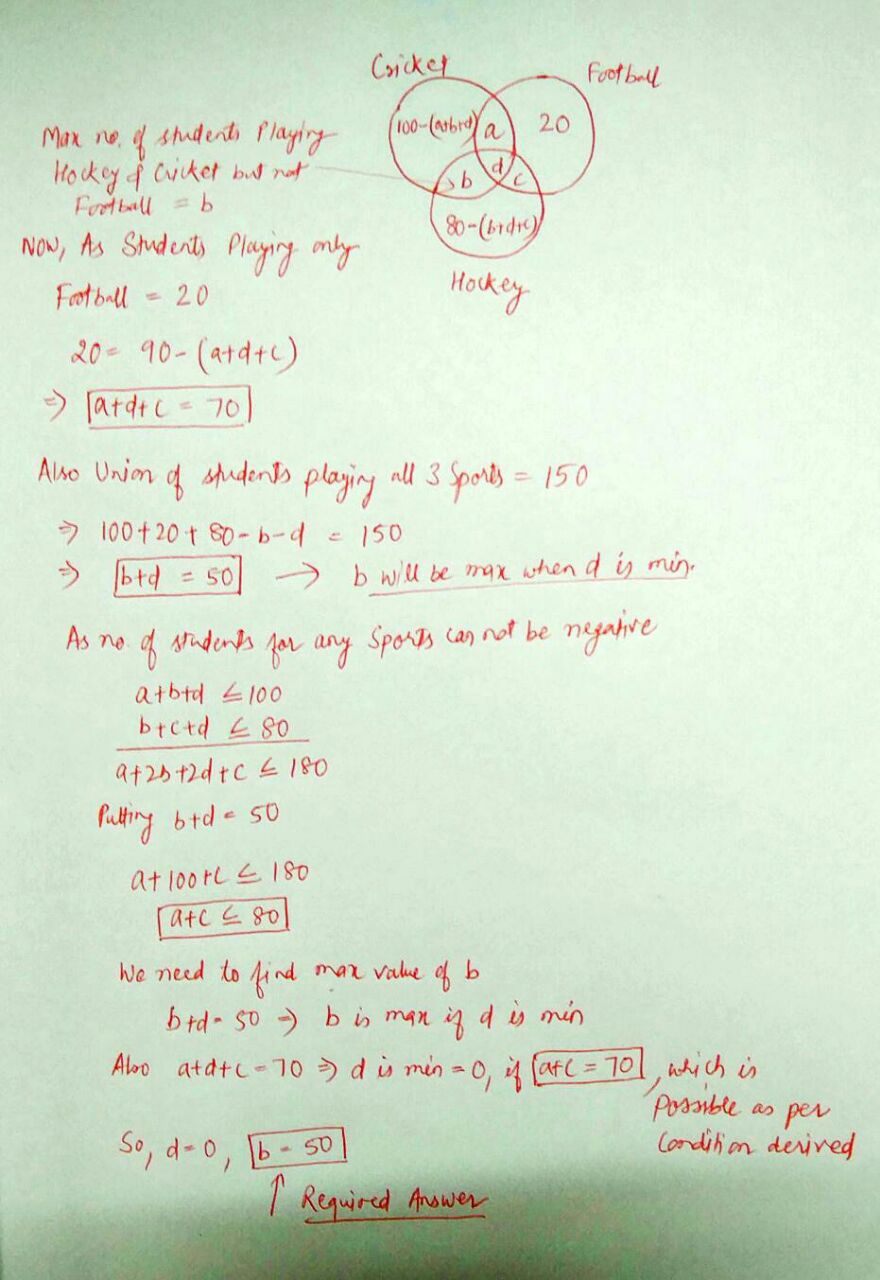 Cricket
Football
100-(a+b+d)
a
20
d
b
c
80-(b+d+c)
Hockey
Max no. of students Playing
Hockey & Cricket but not
Football = b
Now, As Students Playing only
Football = 20
20 = 90 - (a+d+c)
⇒ a+d+c = 70
Also Union of students playing all 3 Sports = 150
⇒ 100+20+80-b-d = 150
⇒ b+d = 50 → b will be max when d is min.
As no. of students for any Sports can not be negative
a+b+d ≤ 100
b+c+d ≤ 80
a+2b+2d+c ≤ 180
Putting b+d = 50
a+100+c ≤ 180
a+c ≤ 80
We need to find max value of b
b+d = 50 ⇒ b is max if d is min
Also a+d+c = 70 ⇒ d is min = 0, if a+c = 70, which is
possible as per
Condition derived
So, d=0, b = 50
↑ Required Answer